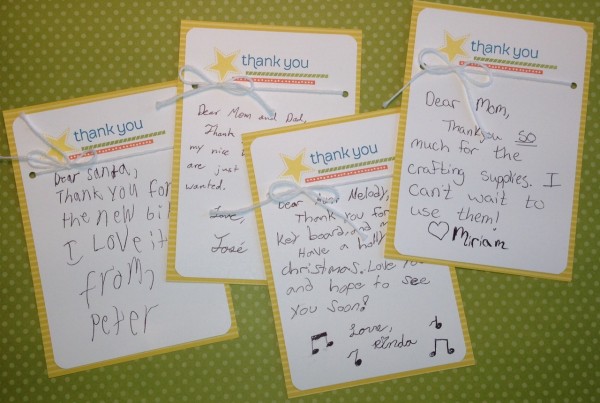 thank you
Dear Santa,
Thank You for
the new bi
I Love it
from,
Peter
thank you
Dear Mom and Dad,
Thank
my nice b
are just
wanted.
Love,
José
thank you
Dear Aunt Melody,
Thank You for
Key board, and m
Have a holly
christmas. Love You
and hope to see
you soon!
Love,
thank you
Dear Mom,
Thank you so
much for the
crafting supplies. I
can't wait to
use them!
♡ Miriam